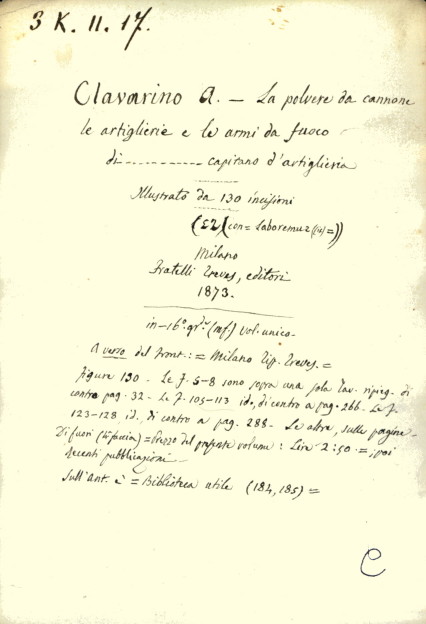 3 K. 11. 17.
Clavarino A. — La polvere da cannone
le artiglierie e le armi da fuoco
di ----------- capitano d'artiglieria
Illustrato da 130 incisioni
con = Laboremus
Milano
Fratelli Treves, editori
1873.
in-16º. gr. (mf.) vol. unico.
A verso del front.: = Milano Tip. Treves. =
figure 130 - Le f. 5-8 sono sopra una sola tav. ripieg. di
contro pag. 32 - Le f. 105-113 id., di contro a pag. 266 - Le f.
123-128 id. di contro a pag. 288 - Le altre, sulle pagine -
Di fuori = Prezzo del presente volume: Lire 2:50 = ; poi
recenti pubblicazioni -
Sull'ant. è = Biblioteca utile (184, 185) =
C